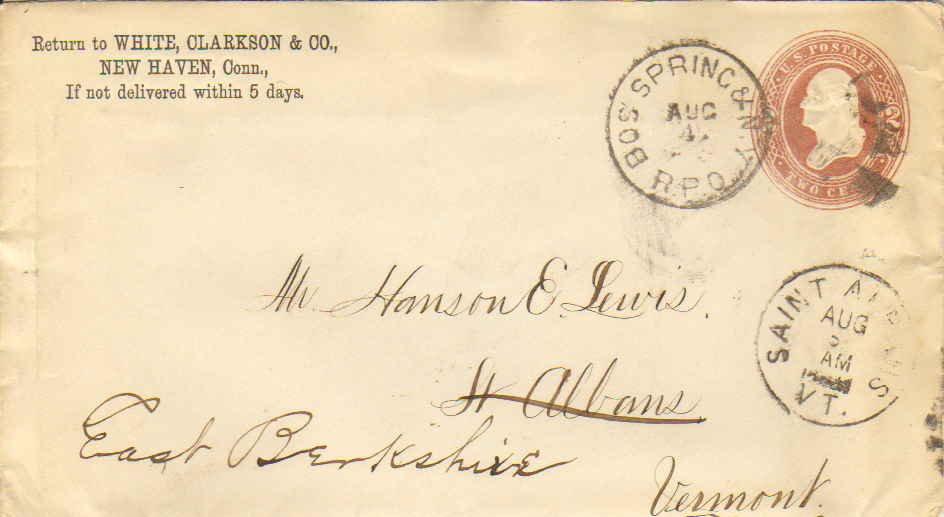 Return to WHITE, CLARKSON & CO.,
NEW HAVEN, Conn.,
If not delivered within 5 days.
BOS SPRING & N.Y.
AUG
4
R.P.O.
U.S. POSTAGE
TWO
2
Mr Hanson E. Lewis.
St Albans
East Berkshire
Vermont.
SAINT ALBANS
AUG
5
AM
VT.